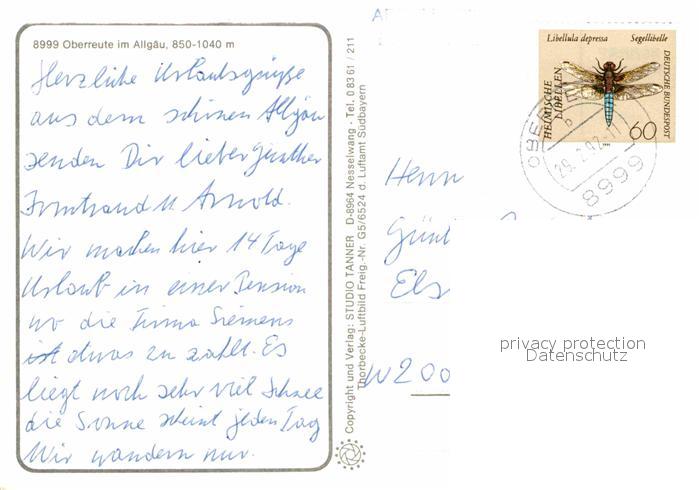 8999 Oberreute im Allgäu, 850-1040 m
Herzliche Urlaubsgrüße
aus dem schönen Allgäu
senden Dir lieber Günther
Irmtraud u. Arnold.
Wir machen hier 14 Tage
Urlaub in einer Pension
wo die Firma Siemens
etwas zu zahlt. Es
liegt noch sehr viel Schnee
die Sonne scheint jeden Tag
Wir wandern nur.
Copyright und Verlag: STUDIO TANNER D-8964 Nesselwang · Tel. 0 83 61 / 211
Thorbecke-Luftbild Freig.-Nr. G5/6524 d. Luftamt Südbayern
Libellula depressa Segellibelle
HEIMISCHE
LIBELLEN
DEUTSCHE BUNDESPOST
60
1991
8999
Herrn
Günt
Els
W 200
privacy protection
Datenschutz